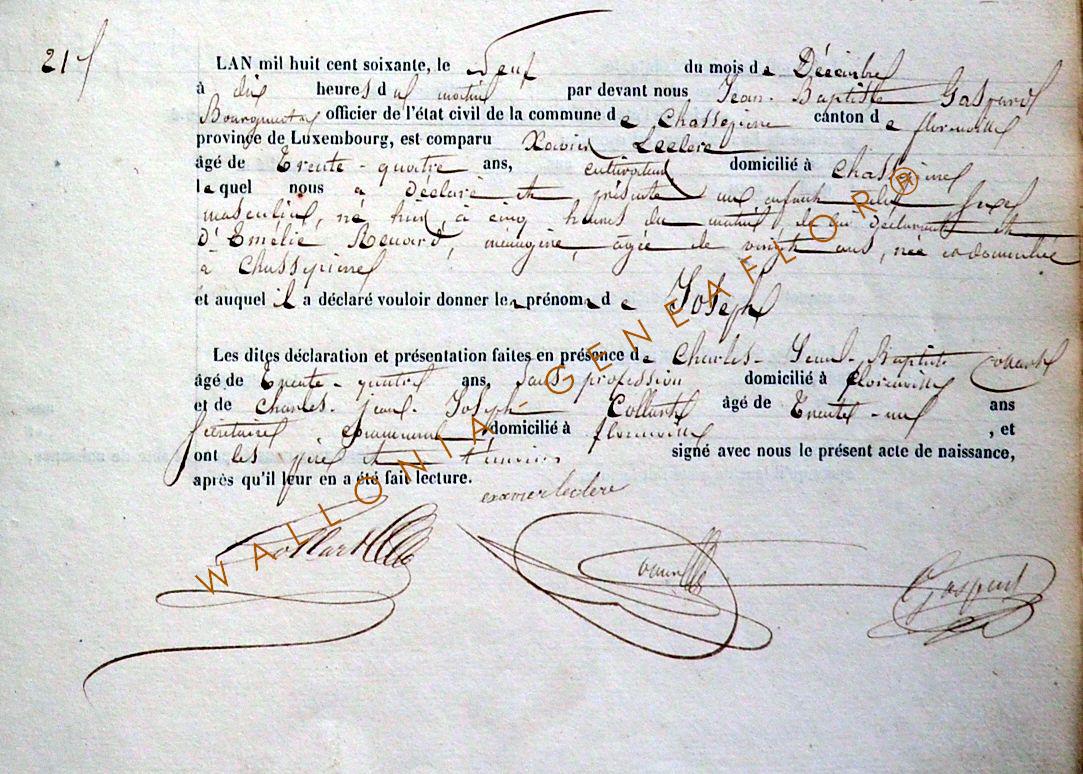 21
LAN mil huit cent soixante, le Neuf du mois de Décembre
à dix heures du matin par devant nous Jean-Baptiste Gaspard
Bourgmestre officier de l'état civil de la commune de Chassepierre canton de florenville
province de Luxembourg, est comparu Xavier Leclere
âgé de Trente-quatre ans, cultivateur domicilié à Chassepierre
lequel nous a Déclaré et présenté un enfant du sexe
masculin, né hier, à cinq heures du matin, de lui déclarant et
D' Emélie Renard, ménagère, âgée de vingt ans, née et domiciliée
à Chassepierre
et auquel il a déclaré vouloir donner le prénom de Joseph
Les dites déclaration et présentation faites en présence de Charles-Jean-Baptiste
âgé de Trente-quatre ans, sans profession domicilié à florenville
et de Charles-jean-Joseph Collart âgé de Trente-un ans
Secrétaire communal domicilié à florenville , et
ont les père et témoins signé avec nous le présent acte de naissance,
après qu'il leur en a été fait lecture.
exavier leclere
Collart Gaspard
WALLONIA GENEAFLOR®